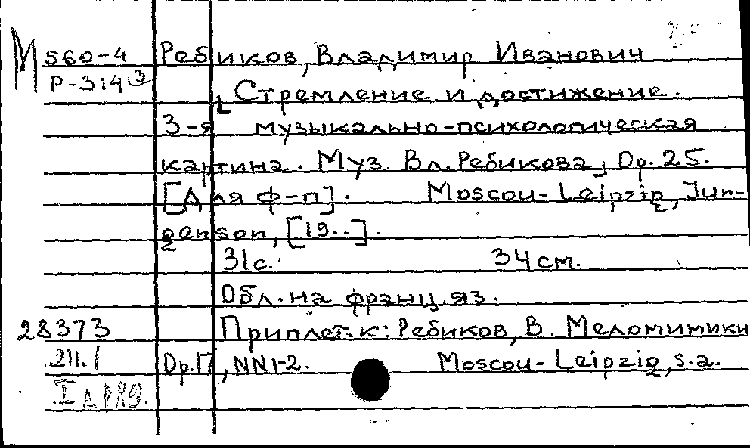 М 560-4 Ребиков, Владимир Иванович
Р-314 3
Стремление и достижение.
3-я музыкально-психологическая
картина. Муз. Вл. Ребикова, Op. 25.
[Для ф-п]. Moscou-Leipzig, Jur-
genson, [19..].
31с. 34 см.
Обл. на франц. яз.
28373 Приплет. к: Ребиков, В. Меломимики
Op. 17, NN1-2. Moscou-Leipzig, s.a.